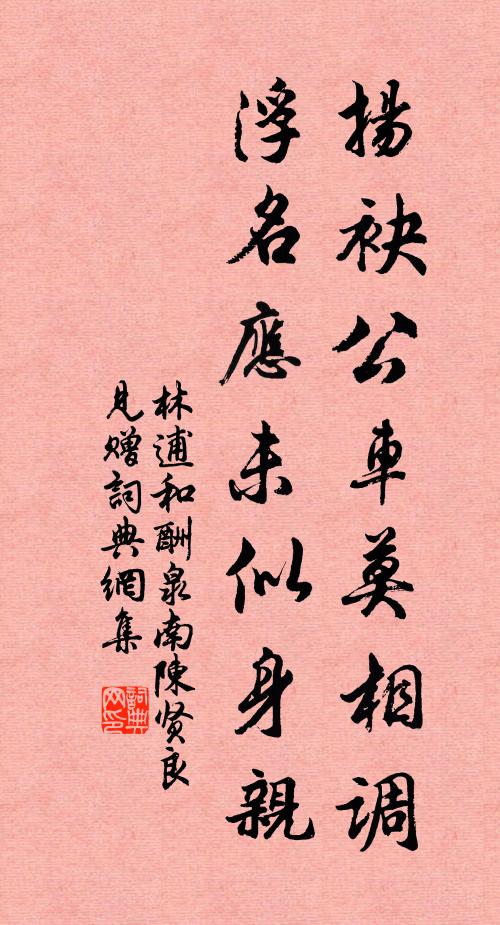 揚袂公車莫相調
浮名應未似身親
林逋和酬泉南陳贤良
見贈詞典網集
詞典网印